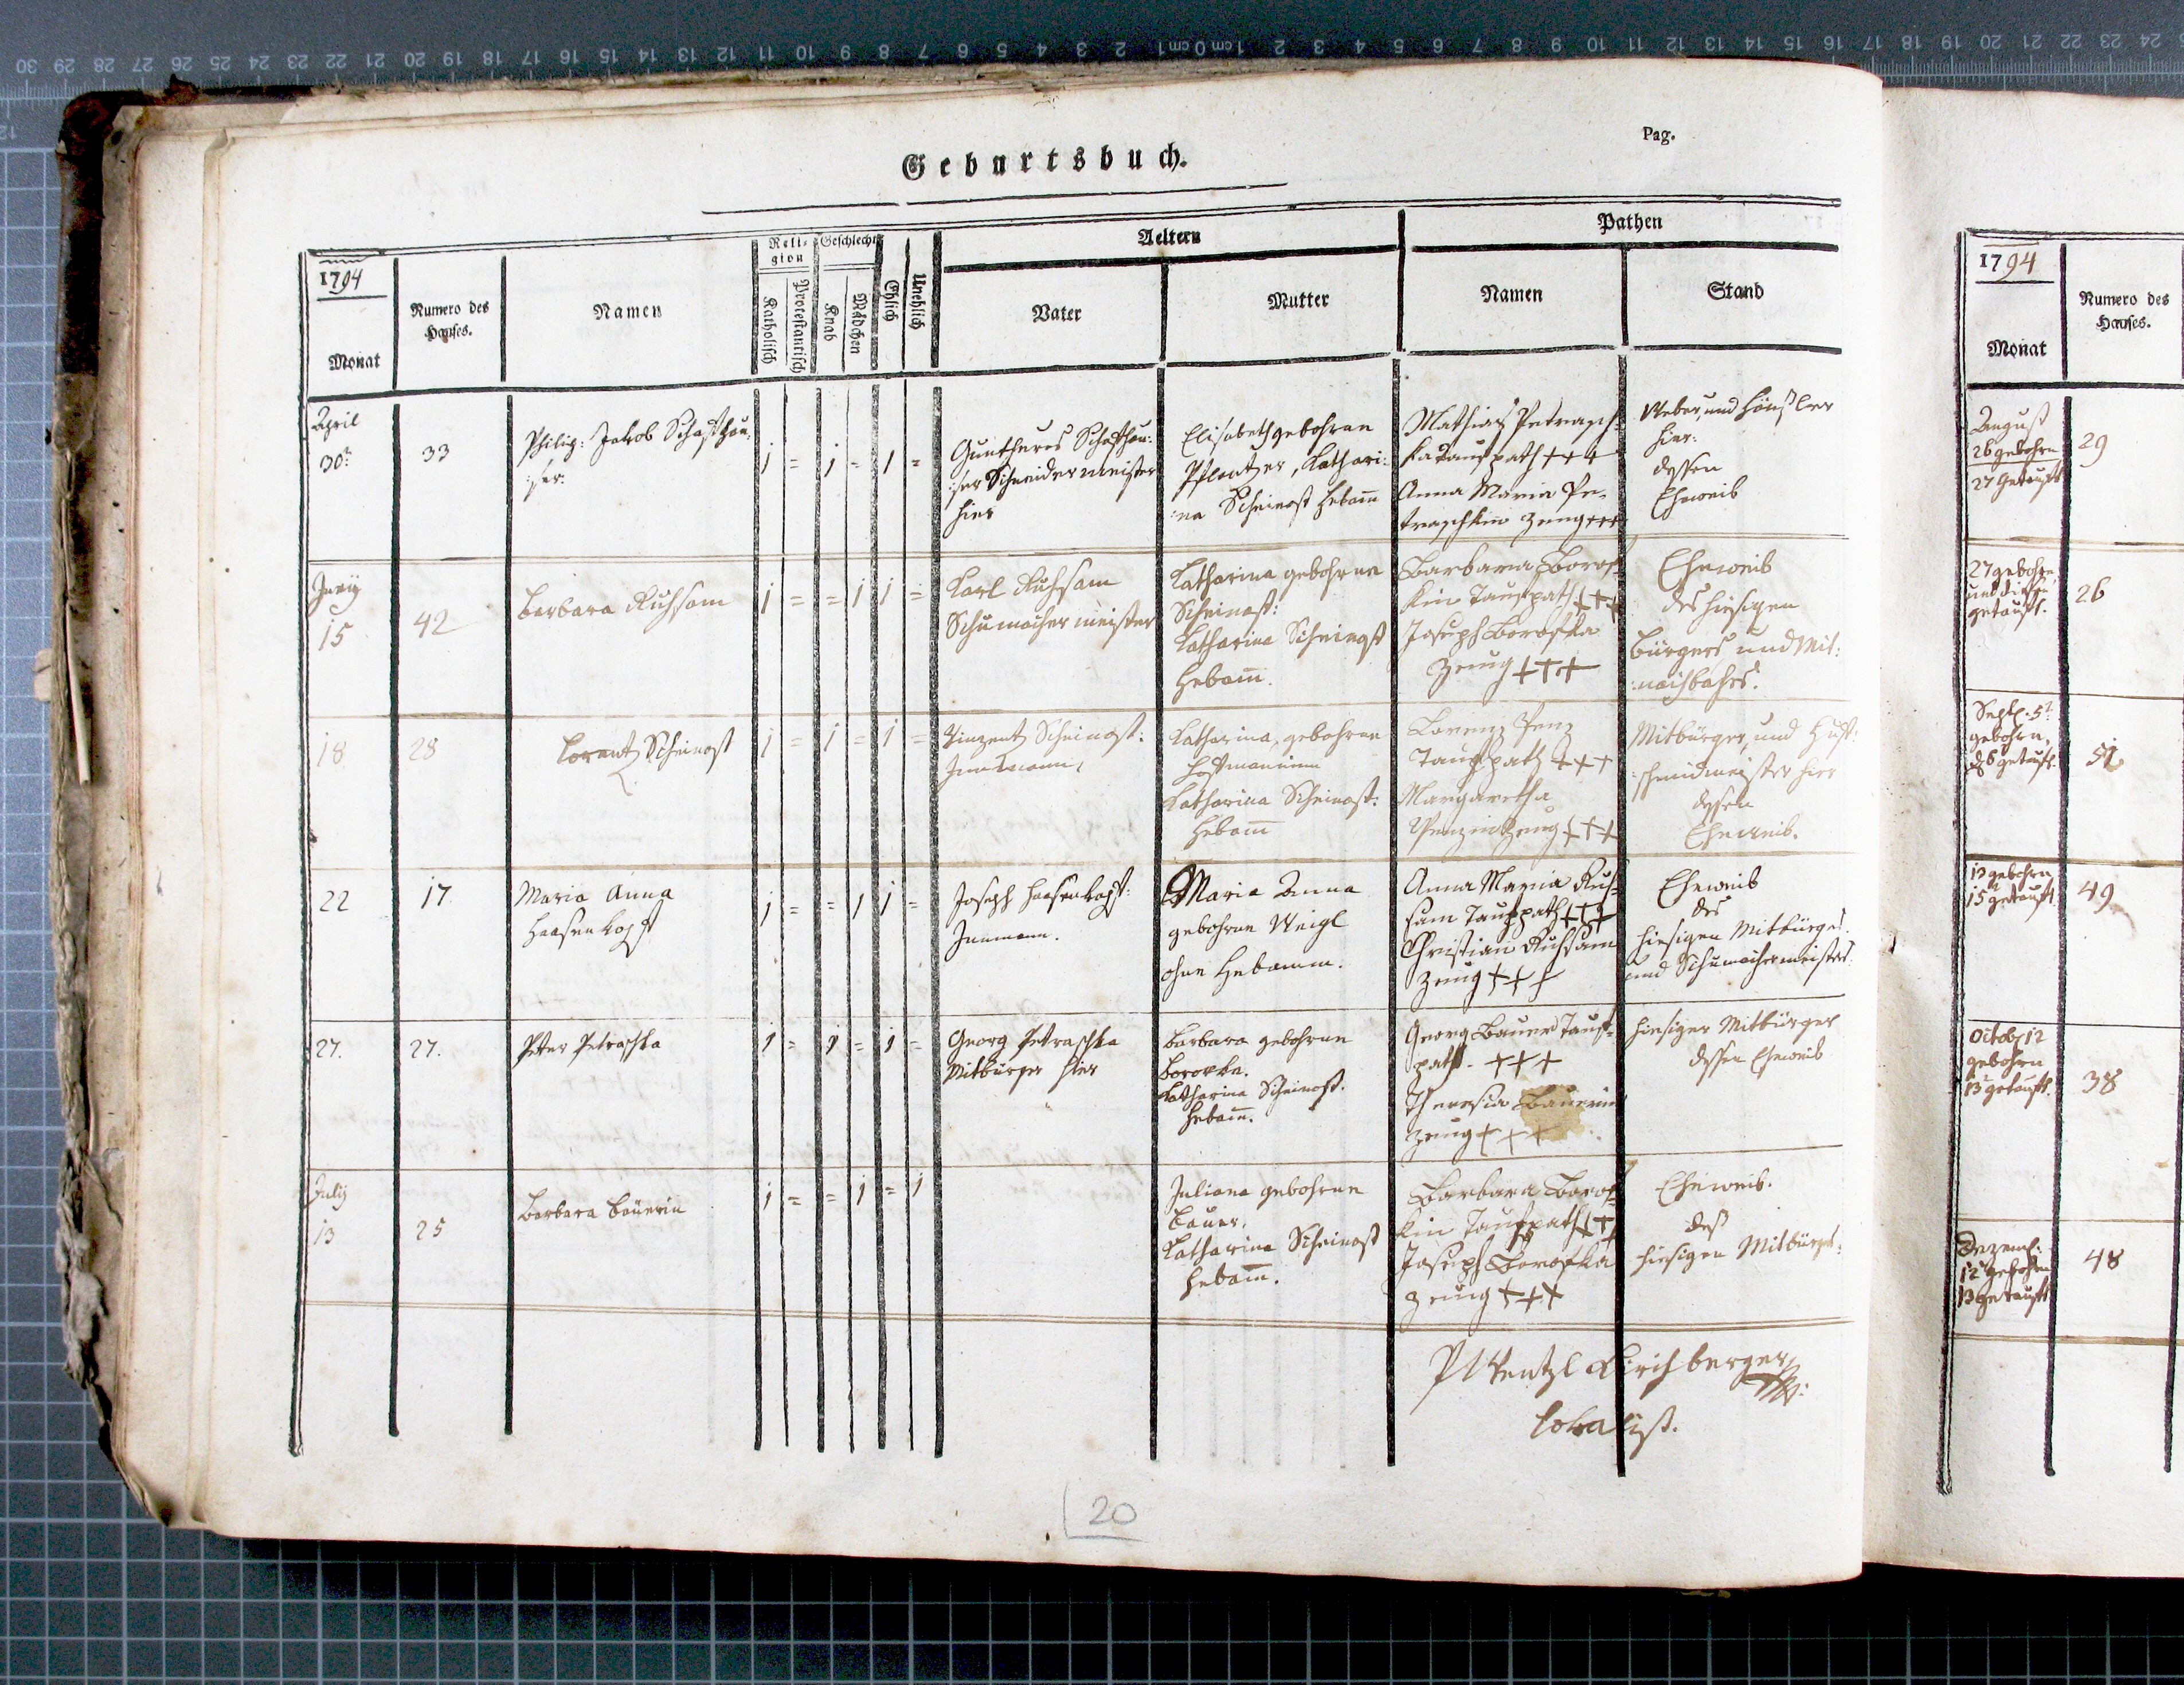 Pag.
Geburtsbuch.
1794
Monat
Numero des
Hauses.
Namen
Reli-
gion
Katholisch
Protestantisch
Geschlecht
Knab
Mädchen
Ehlich
Unehlich
Aeltern
Vater
Mutter
Pathen
Namen
Stand
April
30
33
Philip: Jakob Schasthau
:ser:
1 = 1 = 1 =
Guntherus Schasthau:
:ser Schneidermeister
hier
Elisabeth gebohrne
Kathari:
:na Scheinost Hebam̅
Mathias Petrasch:
ka Taufpath +++
Anna Maria Pe:
traschkin Zeug +++
Weber, und Häußler
hier:
dessen
Eheweib
Juny
15
42
Barbara Ruhsam
1 = = 1 1 =
Karl Ruhsam
Schumachermeister
Katharina gebohrne
Scheinost:
Katharina Scheinost
Hebam̅.
Barbara Borof:
kin Taufpath +++
Joseph Borofka
Zeug +++
Eheweib
des hiesigen
Bürgers und Mit:
:nachbahrs.
18
28
Lorentz Scheinost
1 = 1 = 1 =
Vinzentz Scheinost:
Innmann,
Katharina, gebohrne
Hofmaninn
Katharina Scheinost:
Hebam̅
Lorenz Penz
Taufpath +++
Margaretha
Penzin Zeug +++
Mitbürger, und Huf:
:schmidmeister hier
dessen
Eheweib.
22
17
Maria Anna
Haasenkopf
1 = = 1 1 =
Joseph Haasenkopf:
Innmann.
Maria Anna
gebohrne Weigl
ohne Hebamm.
Anna Maria Ruh:
sam Taufpath +++
Christian Ruhsam
Zeug +++
Eheweib
des
hiesigen Mitbürgers.
und Schumachermeisters.
27.
27.
Peter Petraschka
1 = 1 = 1 =
Georg Petraschka
Mitbürger hier
Barbara gebohrne
Borofka.
Katharina Scheinost.
Hebam̅.
Georg Bauer Tauf:
path. +++
Theresia Bauerin
Zeug +++
hiesiger Mitbürger
dessen Eheweib
July
13
25
Barbara Bäuerin
1 = = 1 = 1
Juliana gebohrne
Bauer.
Katharina Scheinost
Hebam̅.
Barbara Borof:
kin Taufpath +++
Joseph Borofka
Zeug +++
Eheweib.
deß
hiesigen Mitbürgers:
P Wentzl Kirchberger
Lokalist.
20
1794
Monat
Numero des
Hauses.
August
26 gebohrn
27 getauft
29
27 gebohrn
getauft.
26
Sept. 5
gebohrn,
6 getauft.
51
13 gebohrn
15 getauft.
49
Octob 12
gebohrn
13 getauft.
38
Dezemb:
12 gebohrn
13 getauft
48